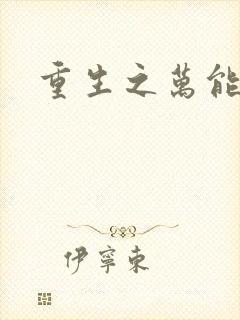 重生之萬能
伊寧東